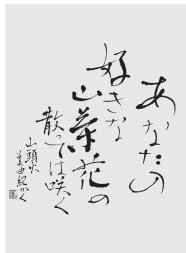 あなたの
好きな
山茶花の
散つては咲く
山頭火